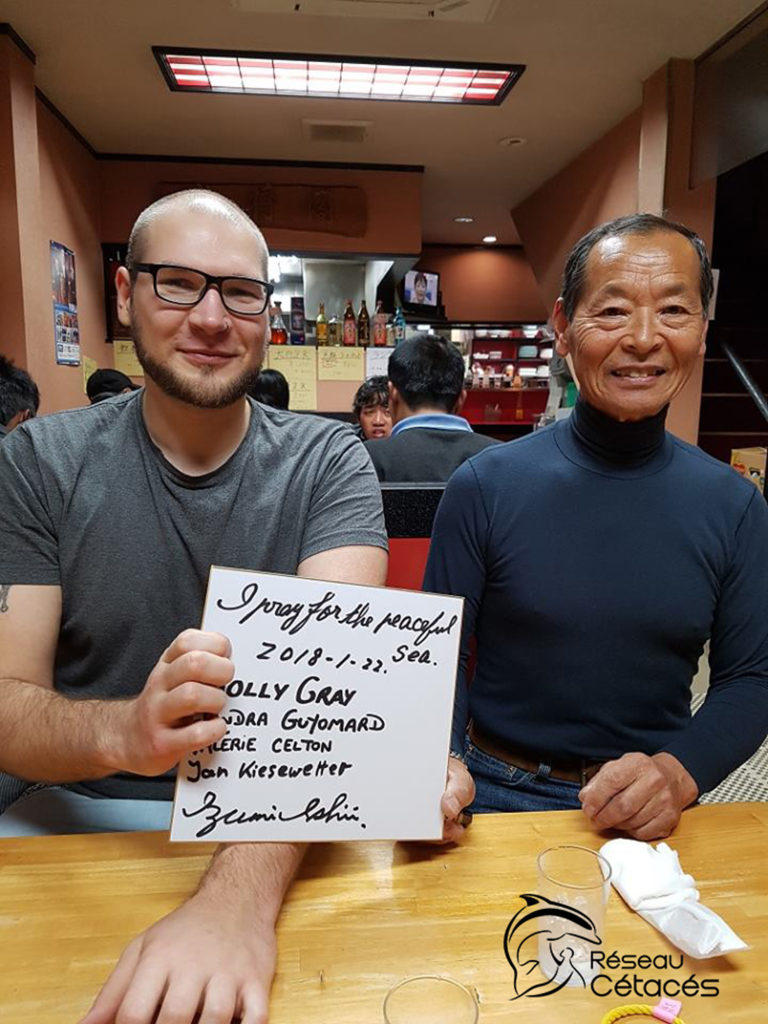 I pray for the peaceful
sea.
2018-1-22.
OLLY GRAY
GUYOMARD
CELTON
Jan Kiesewetter
Izumi Ishii.
Réseau
Cétacés